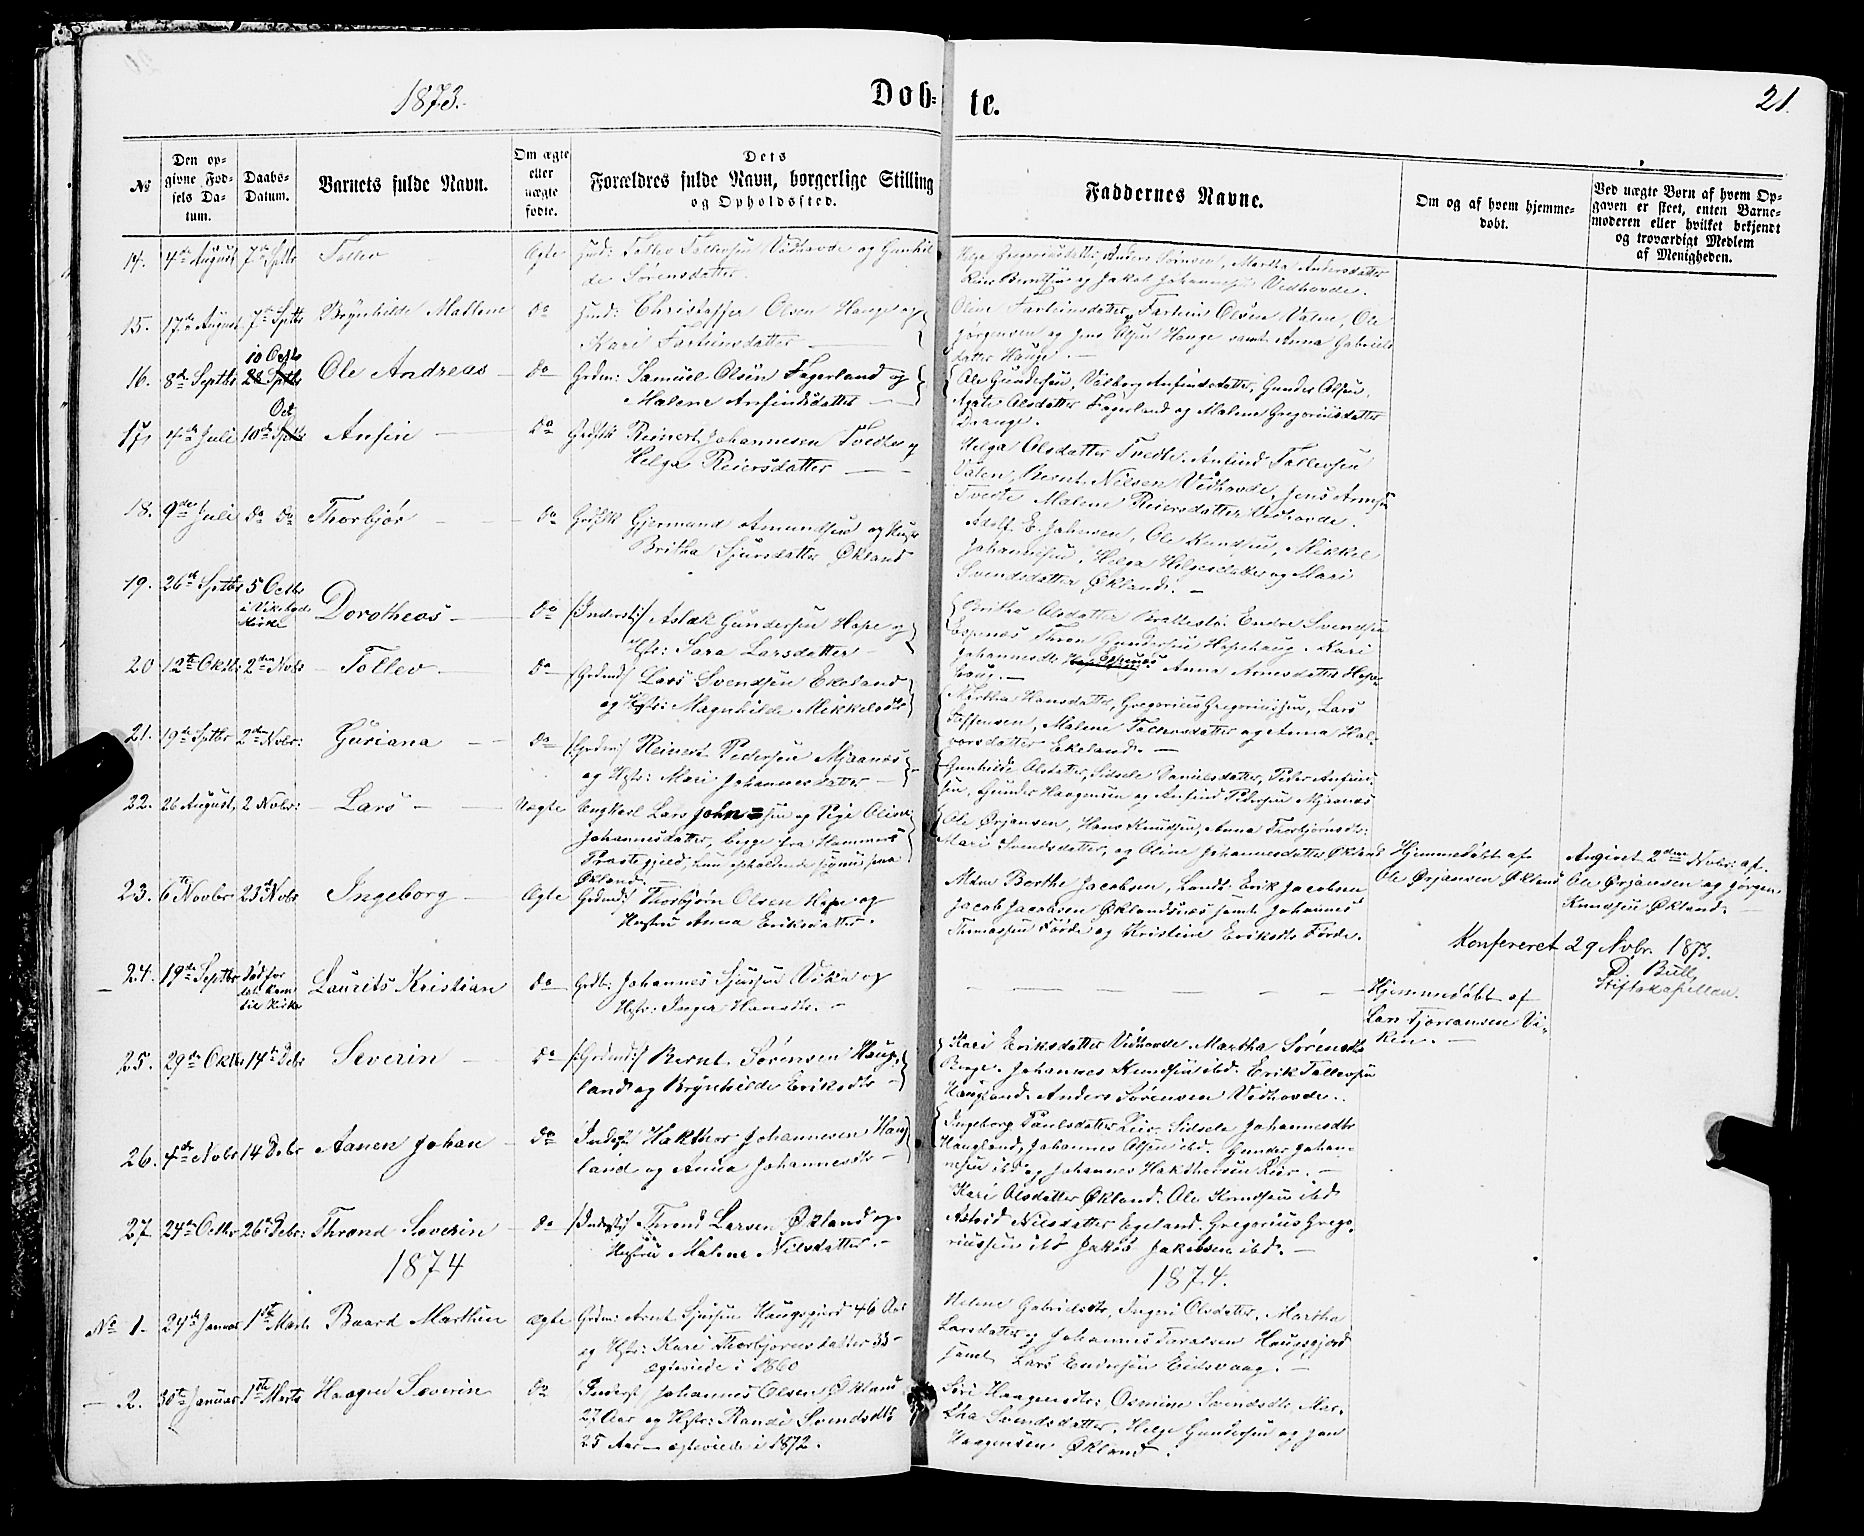 1873.
Døb-
te.
21.
No
Den op-
givne Fød-
sels Da-
tum.
Daabs-
Datum.
Barnets fulde Navn.
Om ægte
eller
uægte
fødte.
Dets
Forældres fulde Navn, borgerlige Stilling
og Opholdssted.
Faddernes Navne.
Om og af hvem hjemme-
døbt.
Ved uægte Børn af hvem Op-
gaven er skeet, enten Barne-
moderen eller hvilket bekjendt
og troværdigt Medlem
af Menigheden.
14. 4de August 7de Sptbr Tollev Ægte Husm: Tollev Tollevsen Vidhovde og Gunhil-
de Sørensdatter.
Helje Gregoriusdatter, Anders Sørensen, Martha Andersdatter
Berntsen og Jakob Johannesen Vidhovde.
15. 17de August 7de Sptbr Brynhilde Mallene do Husm: Christoffer Olsen Hauge og
Kari Farteinsdatter
Oline Farteinsdatter, Fartein Olsen Valen, Ole
Jørgensen og Jens Olsen Hauge samt Anna Gabriels
datter Hauge.
16. 8de Septbr 10 Octbr 28 Sptbr Ole Andreas do Grdm: Samuel Olsen Fagerland og
Malene Anfindsdatter
Ole Gundersen, Valborg Anfindsdatter, Gunder Olsen,
Agate Olsdatter Fagerland og Malene Gregoriusdatter
Drange.
17. 4de Juli 10de Oct Sptbr Anfin do Grdbr Reinert Johannesen Tvedte og
Helga Reiersdatter
Helga Olsdatter Tvedte, Anfind Tollevsen
Valen, Bernt Nilsen Vidhovde, Jens Arnesen
Tvedte Malene Reiersdatter Vidhovde.
18. 9de Juli do do Thorbjør do Grdbr Gjermund Amundsen og Hustr
Britha Sjursdatter Økland
Adolf E. Johnsen, Ole Knudsen, Mikkel
Johannesen, Helga Helgesdatter og Mari
Svendsdatter Økland.
19. 26de Sptbr 5 Octbr
i Vikebygd
Kirke
Dorotheas do (Inderst) Aslak Gundersen Hope og
Hstr: Sara Larsdatter
Britha Olsdatter Brattestø. Endre Svendsen
Espenæs Thron Gundersen Hopehaug. Kari
Johannesdtr Espenæs Anna Arnesdatter Hope-
haug.
20 12te Oktbr 2den Novbr Tollev do (Grdmd) Lars Svendsen Ekeland
og Hstr: Magnhilde Mikkelsdtr
Martha Hansdatter, Gregorius Gregoriussen, Lars
Steffensen, Malene Tollevsdatter og Anna Hal-
vorsdatter Ekeland.
21. 19de Sptbr 2den Novbr: Guriana do (Grdm) Reinert Pedersen Mjaanæs
og Hstr: Mari Johannesdatter
Gunhilde Olsdatter, Sidsele Danielsdatter, Peder Anfind-
sen, Gunder Haagensen og Anfind Pedersen Mjaanæs
22. 26 August, 2 Novbr: Lars Uægte Ungkarl Lars John=sen og Pige Oline
Johannesdatter, begge fra Hammers
Præstegjeld, hun opholdende hjemme paa
Økland.
Ole Ørjansen, Hans Knudsen, Anna Thorbjørnsdtr:
Mari Svendsdatter, og Oline Johannesdatter Økland
Hjemmedøbt af
Ole Ørjansen Økland
Angivet 2den Novbr: af
Ole Ørjansen og Jørgen
Knudsen Økland.
23. 6te Novbr 23de Novbr Ingeborg Ægte Grdmd: Thorbjørn Olsen Hope og
Hustru Anna Eriksdatter.
Mdm Berthe Jacobsen, Landh: Erik Jacobsen
Jacob Jacobsen Øklandsnæs samt Johannes
Thomassen Førde og Kristine Eriksdtr Førde.
Konfereret 29 Novbr. 1873.
D. Bull
Stiftskapellan.
24. 19de Septbr død før
det kom
til Kirke
Laurits Kristian do Grdb: Johannes Sjursen Viken og
Hstr: Inger Hansdtr.
Hjemmedøbt af
Lars Fjorransen Vi-
ken.
25. 29de Oktbr 14de Debr Severin do (Grdmd) Bernt Sørensen Haug-
land og Brynhilde Eriksdtr
Kari Eriksdatter Vidhovde, Martha Sørensdtr
Berge, Johannes Knudsen ibd. Erik Tollevsen
Haugland, Anders Sørensen Vidhovde.
26. 4de Novbr 14 Debr Aanen Johan do Inderst Hakthor Johannesen Haug
land og Anna Johannesdtr
Ingeborg Paulsdatter Lier, Sidsele Johannesdtr
Haugland, Johannes Olsen ibd. Gunder Johan-
nesen ibd og Johannes Hakthorsen Lier.
27 24de Octbr 26de Debr: Thrond Severin do (Inderst) Thrond Larsen Økland og
Hustru Malene Nilsdatter.
Kari Olsdatter Økland. Ole Knudsen ibd
Astrid Nilsdatter Egeland. Gregorius Grego-
riussen ibd Jakob Jakobsen ibd.
1874
1874.
No 1. 24de Januar 1ste Marts Baard Marthin ægte Grdm: Arnt Sjursen Haugsgjerd 46 Aar
og Hstr: Kari Thorbjørnsdatter 33
ægteviede i 1860
Helene Gabrielsdtr, Ingeri Olsdatter, Martha
Larsdatter og Johannes Taralsen Haugsgjerd
samt Lars Endersen Eidsvaag.
2. 30te Januar 1ste Marts Haagen Severin do Inderst Johannes Olsen Økland
27 Aar og Hstr: Randi Svendsdtr
25 Aar ægteviede i 1872.
Siri Haagensdtr: Osmine Svendsdtr Mar-
tha Svendsdatter, Helge Gundersen og Jan
Haagensen Økland.